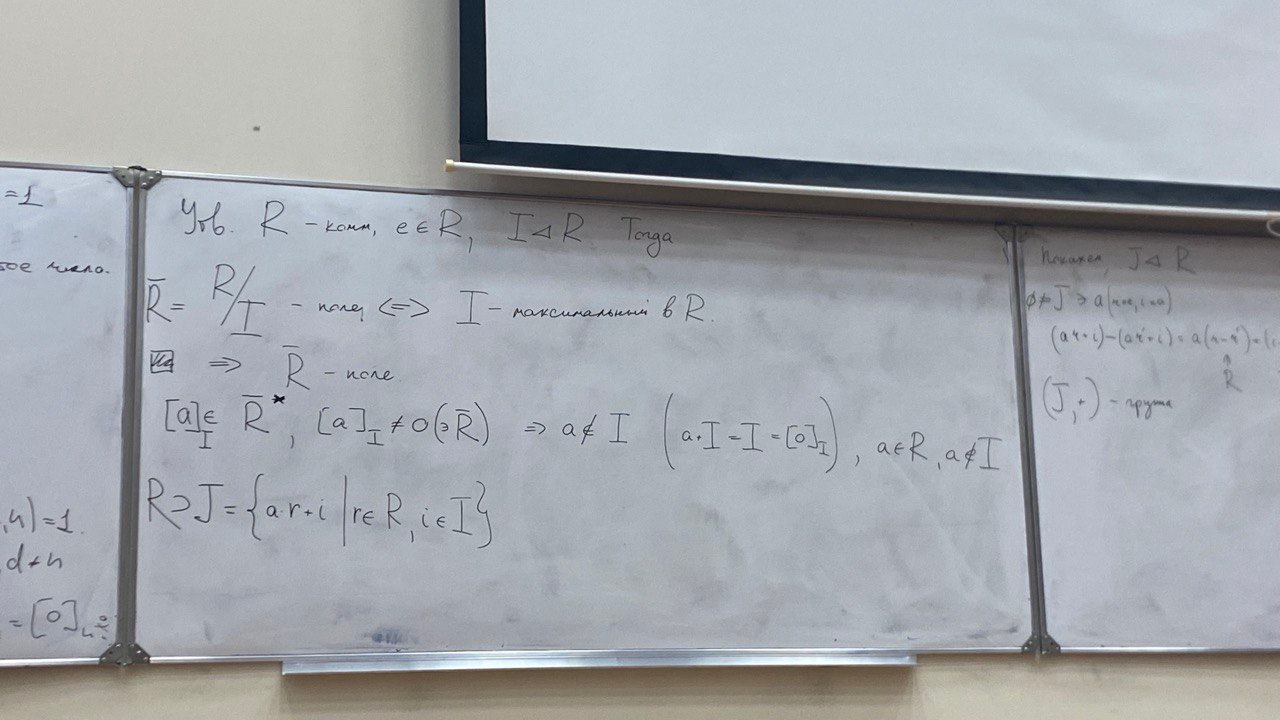 =1
ое число.
,n)=1.
,d+n
=[0]ₙ
Утв. R – комм, e ∈ R, I ⊲ R. Тогда
R̄ = R/I – поле, <=> I – максимальный в R.
⇒ R̄ – поле.
[a]_I ∈ R̄*, [a]_I ≠ 0(∋R̄) ⇒ a ∉ I (a+I=I=[0]_I), a∈R, a∉I
R⊃J={a·r+i | r∈R, i∈I}
Покажем, J ⊲ R
∅≠J ∋ a
(ar+i)-(ar'+i)=a(r-r')+(i
R
(J,+) – группа